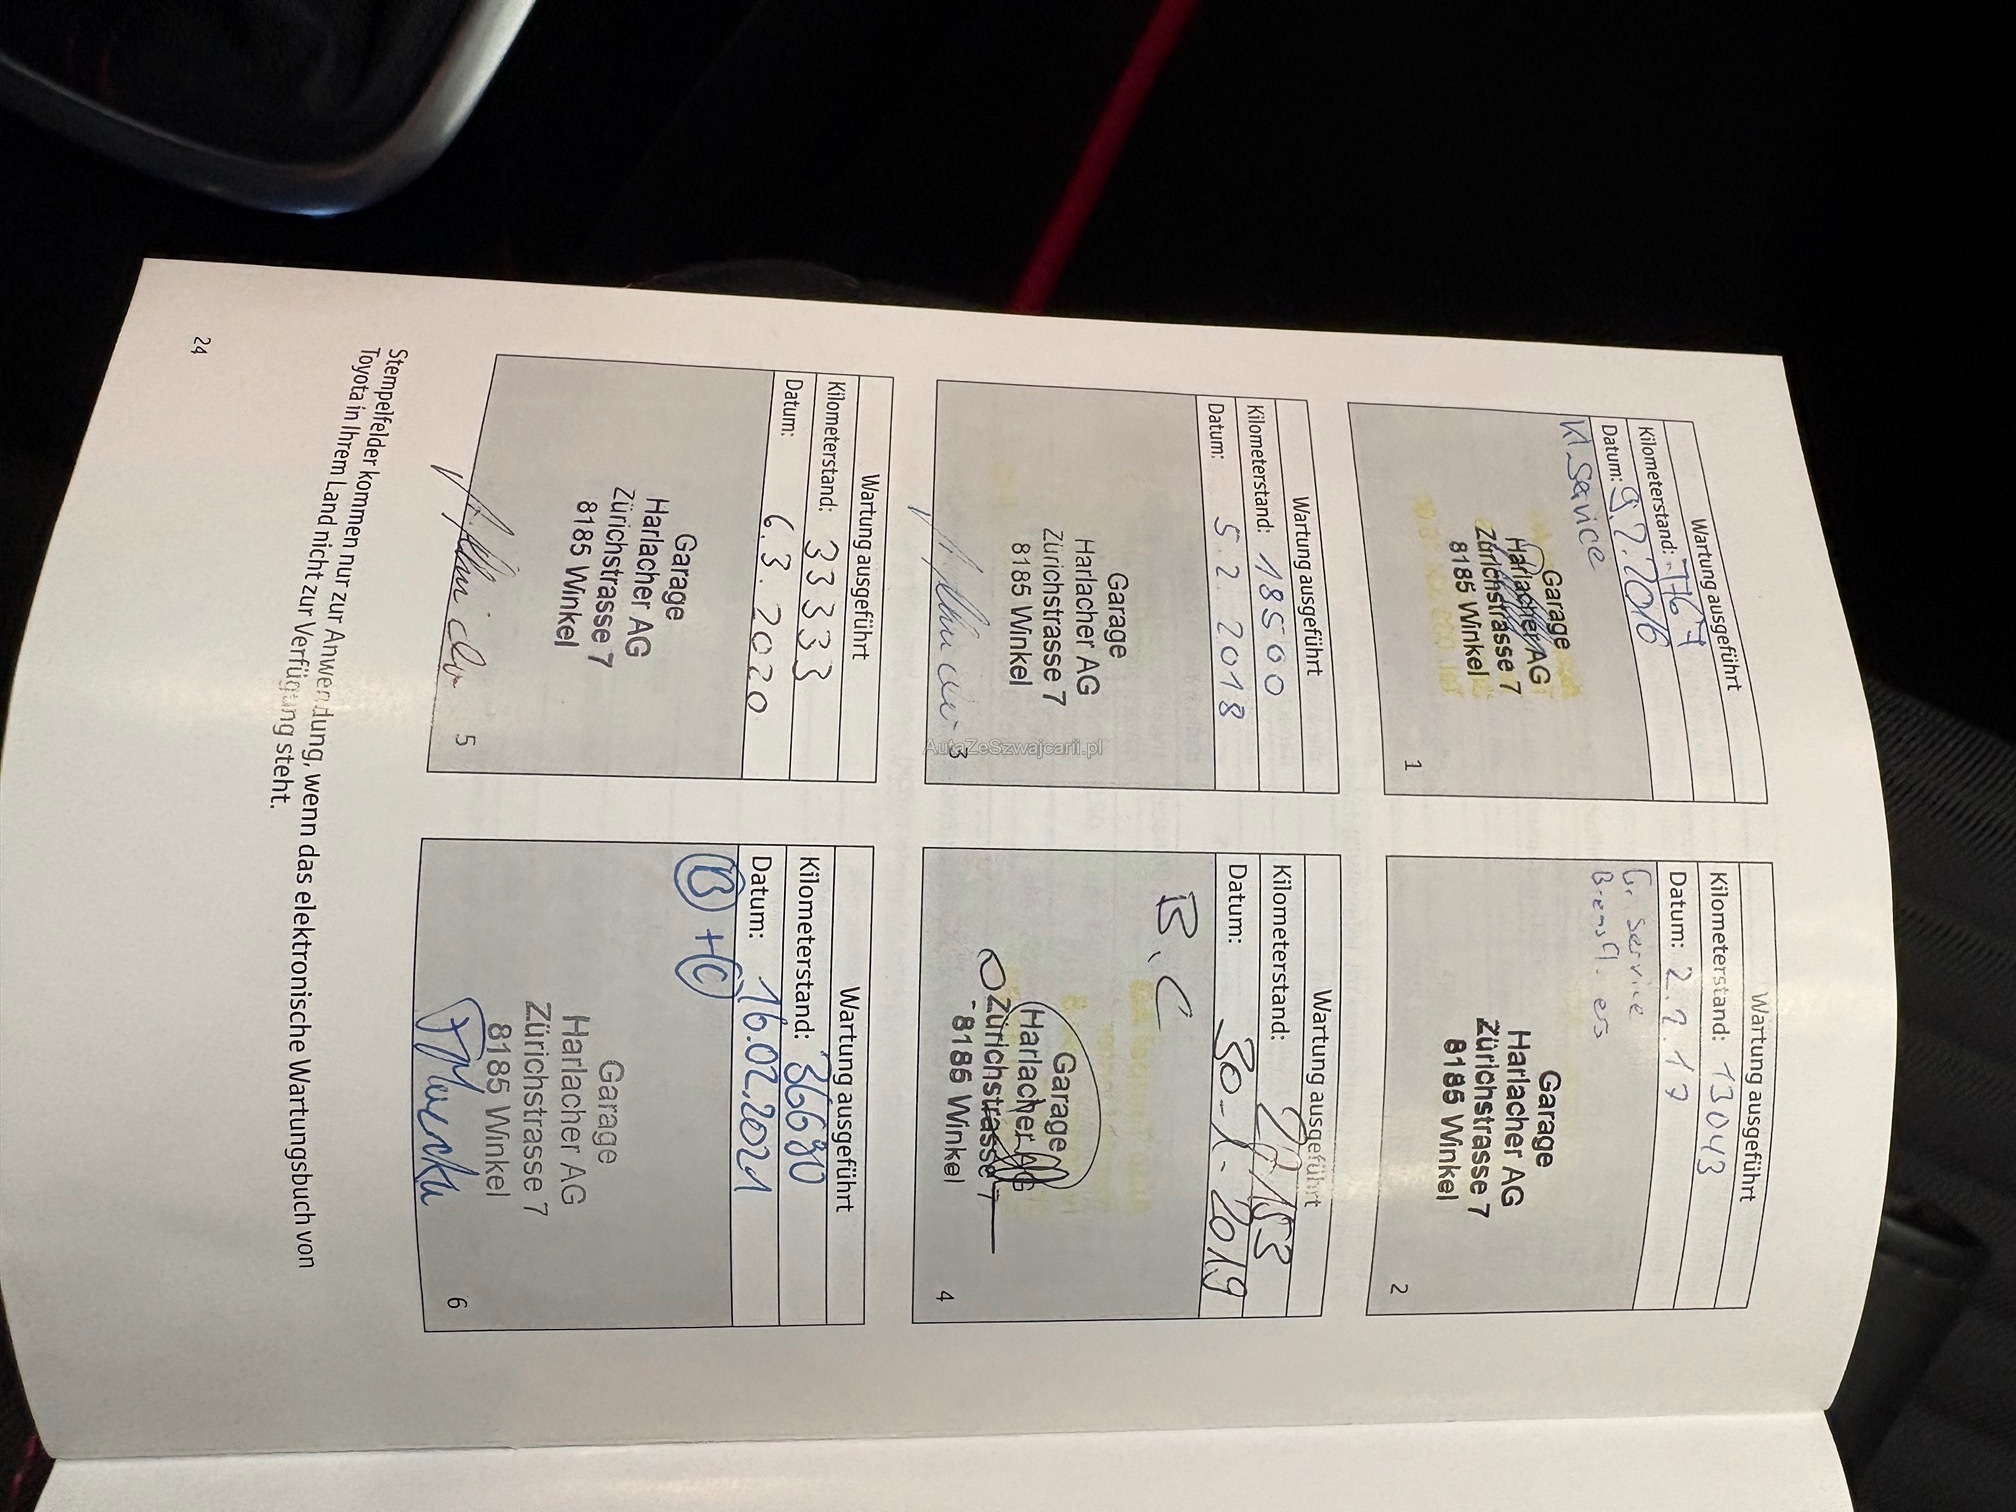 Wartung ausgeführt
Kilometerstand: 7767
Datum: 9.2.2016
Kl Service
Garage
Harlacher AG
Zürichstrasse 7
8185 Winkel
1
Wartung ausgeführt
Kilometerstand: 13043
Datum: 2.2.17
Gr. Service
Bremsfl. ers
Garage
Harlacher AG
Zürichstrasse 7
8185 Winkel
2
Wartung ausgeführt
Kilometerstand: 18500
Datum: 5.2.2018
Garage
Harlacher AG
Zürichstrasse 7
8185 Winkel
3
AutaZeSzwajcarii.pl
Wartung ausgeführt
Kilometerstand:
Datum: 30-1-2019
B, C
Garage
Harlacher AG
Zürichstrasse 7
8185 Winkel
4
Wartung ausgeführt
Kilometerstand: 33333
Datum: 6.3.2020
Garage
Harlacher AG
Zürichstrasse 7
8185 Winkel
5
Wartung ausgeführt
Kilometerstand: 36690
Datum: 16.02.2021
B + C
Garage
Harlacher AG
Zürichstrasse 7
8185 Winkel
6
Stempelfelder kommen nur zur Anwendung, wenn das elektronische Wartungsbuch von
Toyota in Ihrem Land nicht zur Verfügung steht.
24